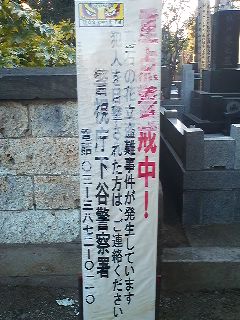 重点警戒中!
墓石の花立盗難事件が発生しています
犯人を目撃された方は、ご連絡ください
警視庁下谷警察署
電話 〇三-三八七二-〇一一〇